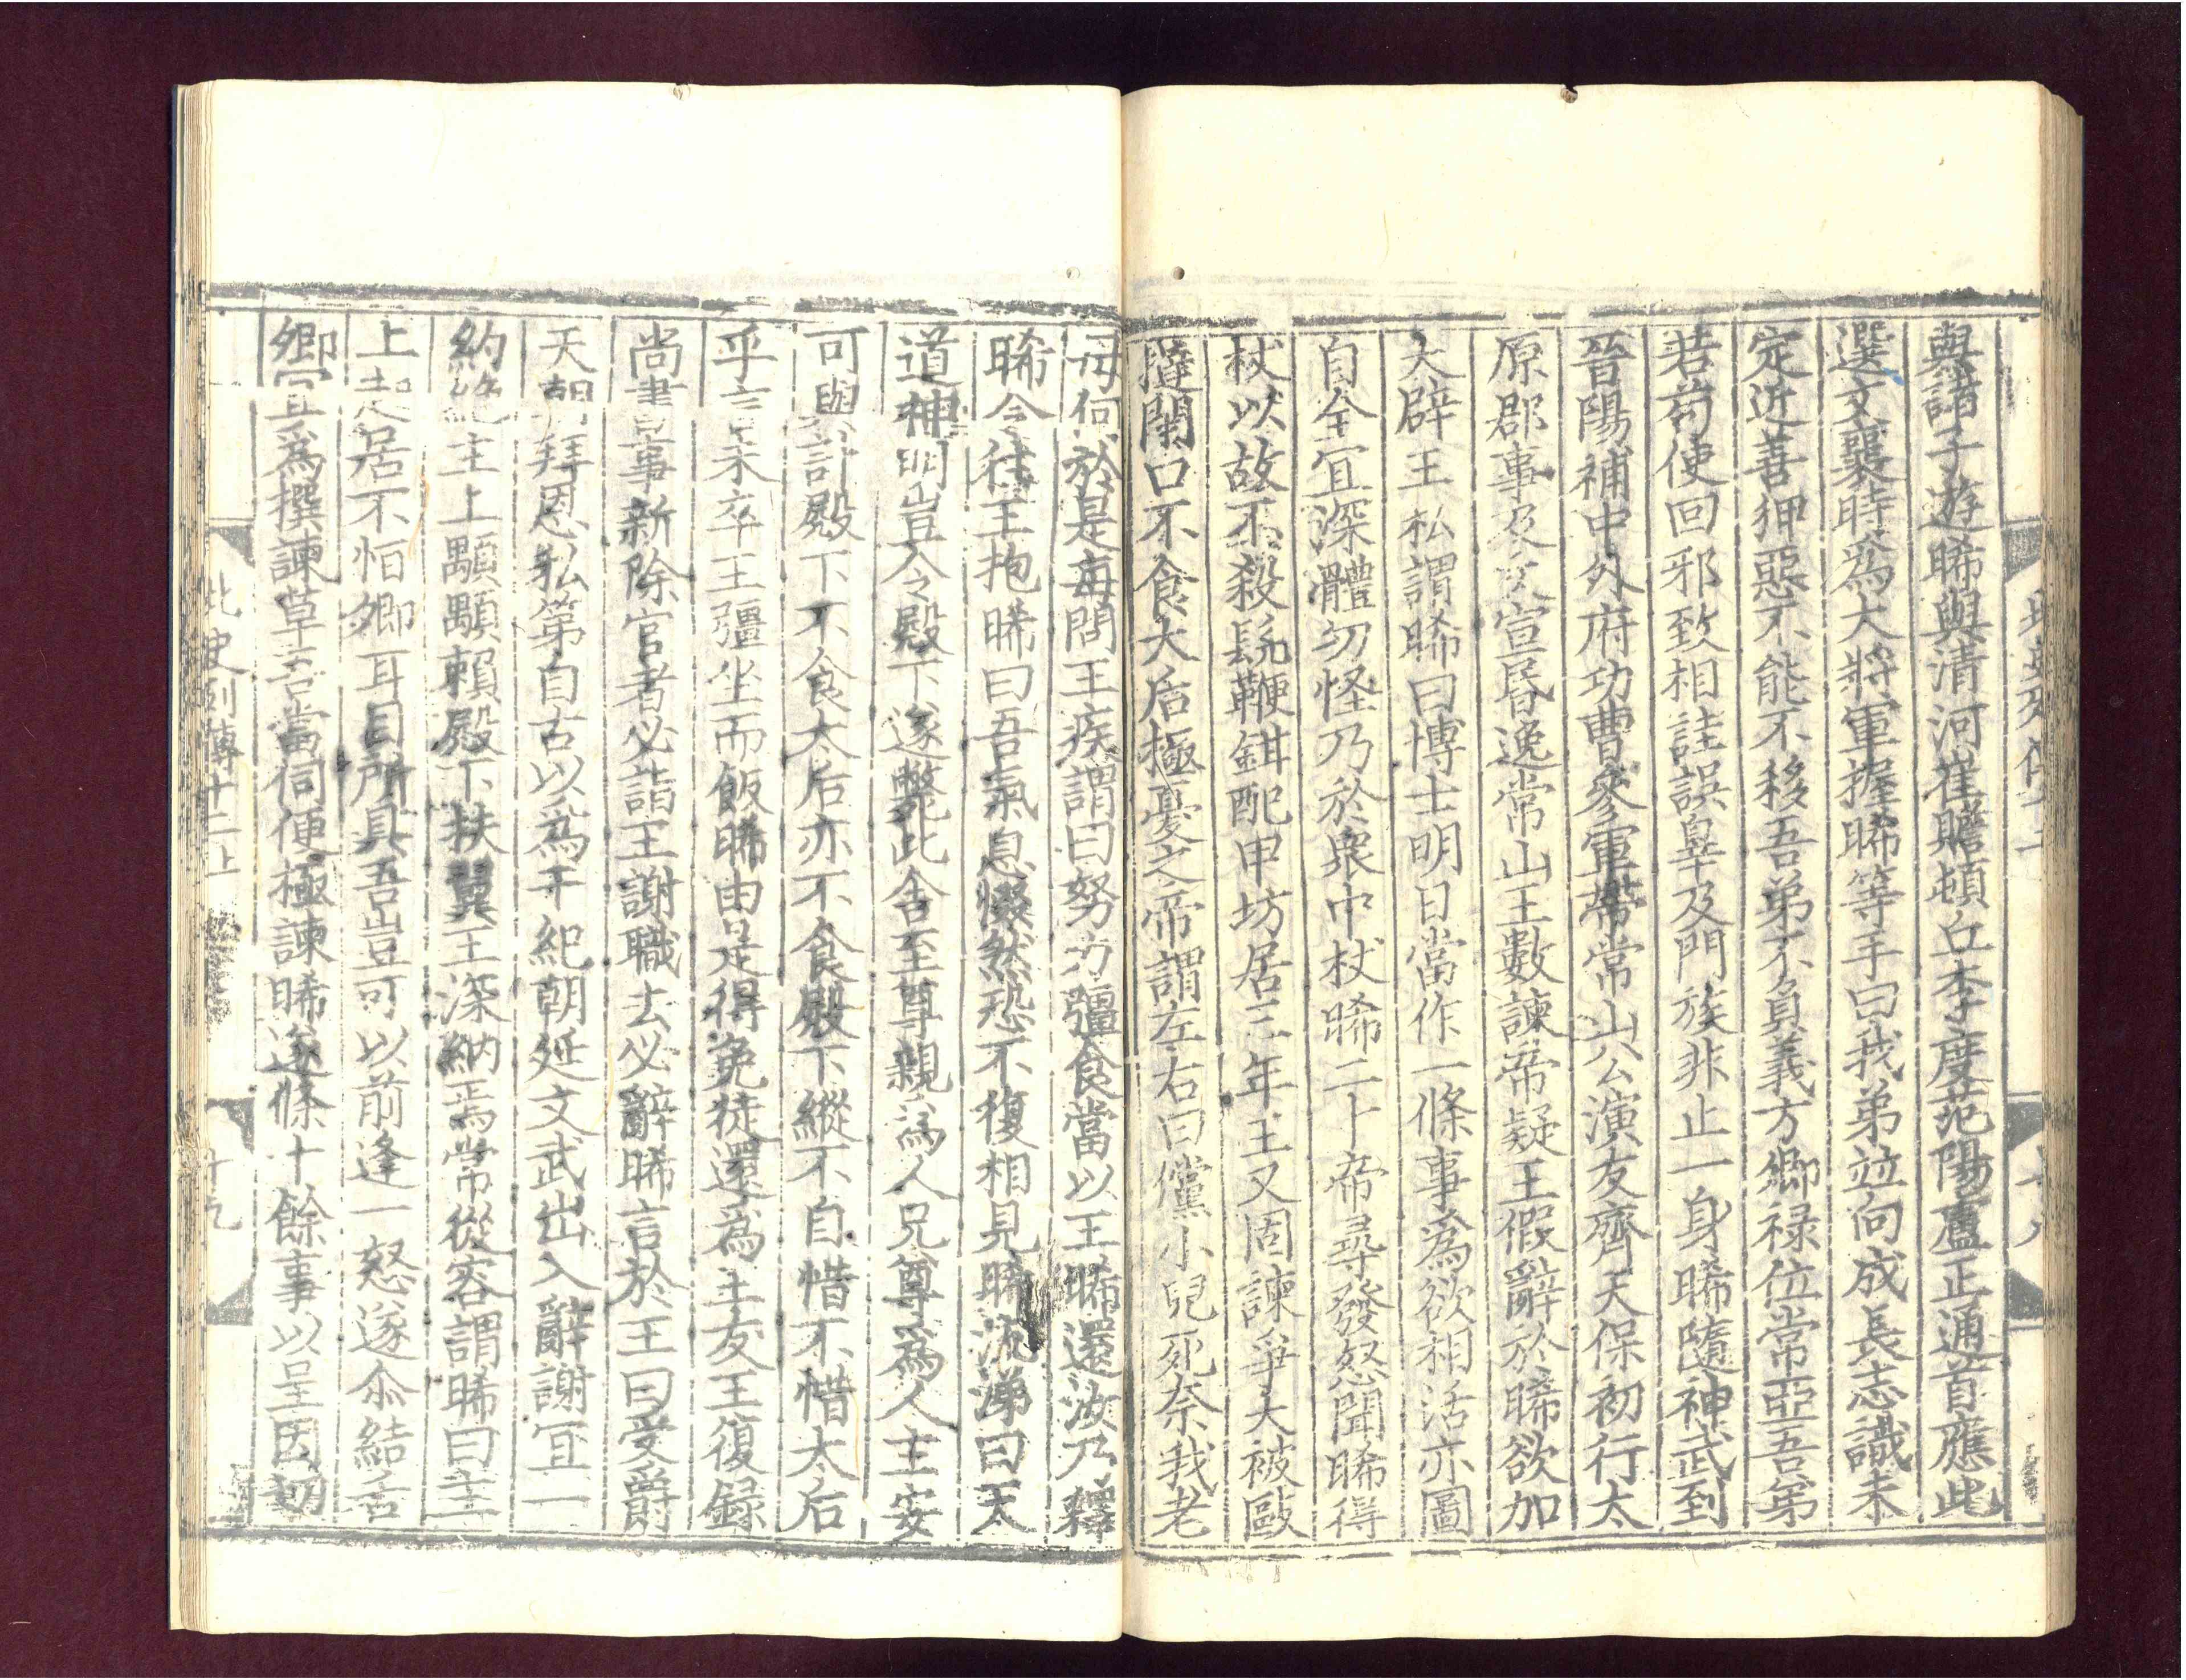 與諸子遊晞與清河崔贍頓丘李度范陽盧正通首應此
選文襄時爲大將軍握晞等手曰我弟竝向成長志識未
定近善狎惡不能不移吾弟不負義方卿祿位常亞吾弟
若苟使回邪致相詿誤辠及門族非止一身晞隨神武到
晉陽補中外府功曹參軍帶常山公演友齊天保初行太
原郡事及文宣昏逸常山王數諫帝疑王假辭於晞欲加
大辟王私謂晞曰博士明日當作一條事爲欲相活亦圖
自全宜深體勿怪乃於衆中杖晞二十帝尋發怒聞晞得
杖以故不殺髡鞭鉗配甲坊居三年王又固諫爭大被毆
撻閉口不食太后極憂之帝謂左右曰儻小兒死奈我老
母何於是每問王疾謂曰努力彊食當以王晞還汝乃釋
晞令往王抱晞曰吾氣息惙然恐不復相見晞流涕曰天
道神明豈令殿下遂斃此舍至尊親爲人兄尊爲人主安
可與計殿下不食太后亦不食殿下縱不自惜不惜太后
乎言未卒王彊坐而飯晞由是得免徒還爲王友王復錄
尚書事新除官者必詣王謝職去必辭晞言於王曰受爵
天朝拜恩私第自古以爲干紀朝廷文武出入辭謝宜一
約絕主上顒顒賴殿下扶翼王深納焉常從容謂晞曰主
上起居不恒卿耳目所具吾豈可以前逢一怒遂尒結舌
卿宜爲撰諫草吾當伺便極諫晞遂條十餘事以呈因切
北史列傳十二上
十九